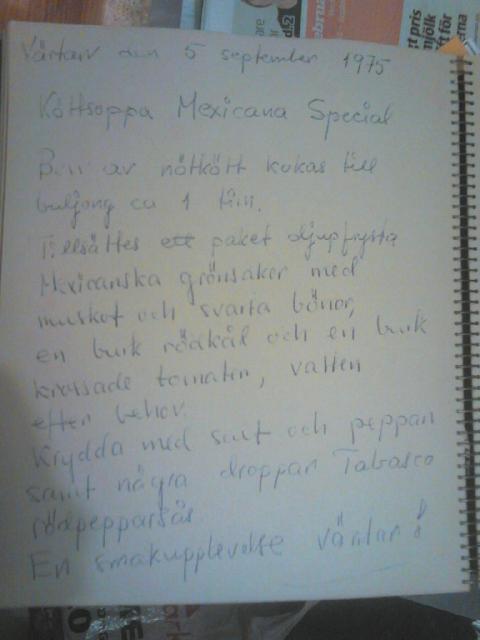 den 5 september 1975
Köttsoppa Mexicana Special
Ben av nötkött kokas till
buljong ca 1 tim.
Tillsättes ett paket djupfrysta
Mexicanska grönsaker med
muskot och svarta bönor,
en burk rödkål och en burk
krossade tomater, vatten
efter behov.
Krydda med salt och peppar
samt några droppar Tabasco
rödpepparsås
En smakupplevelse väntar!